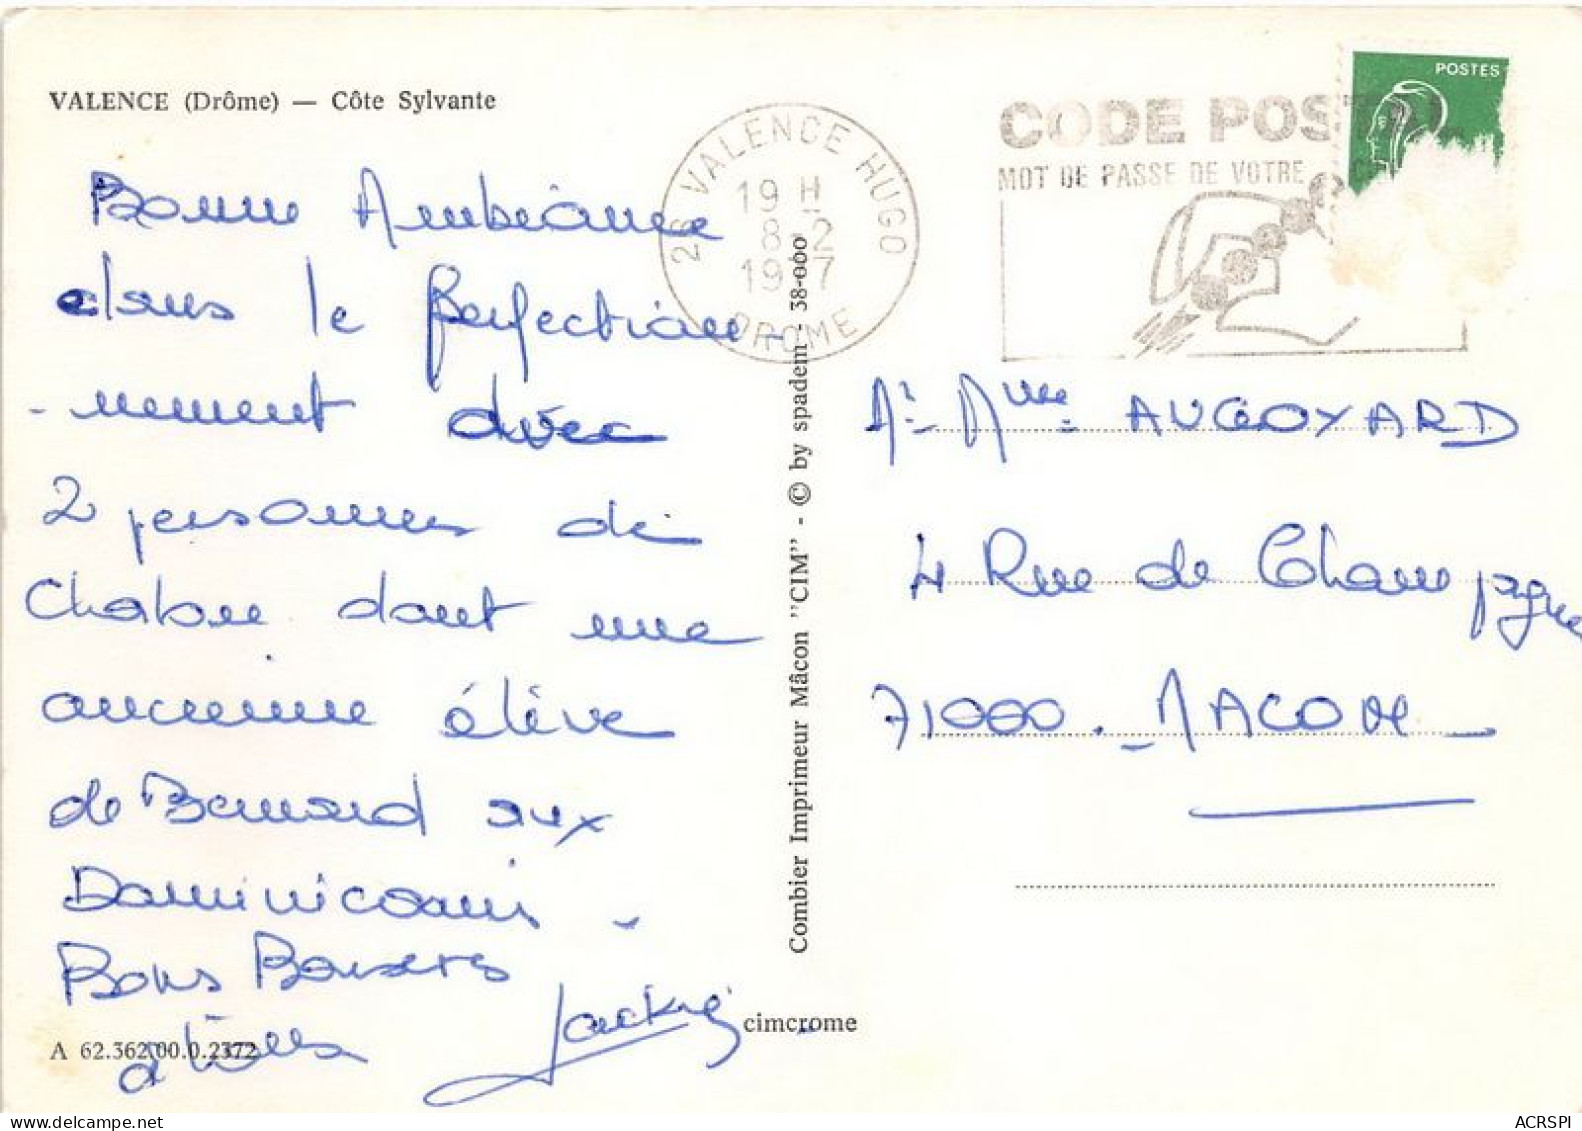 VALENCE (Drôme) — Côte Sylvante
Bonne Ambiance
dans le Perfection
-nement avec
2 personnes de
Chabre dont une
ancienne élève
de Bernard aux
Dominicains -
Bons Baisers
à tous
Jackie
A 62.362.00.0.2372
cimcrome
Combier Imprimeur Mâcon "CIM" - © by spadem - 38-000
26 VALENCE HUGO
19 H
8-2
19 7
DROME
CODE POST
MOT DE PASSE DE VOTRE
POSTES
Mr Mme AUGOYARD
4 Rue de Champagne
71000 - MACON
ACRSPI